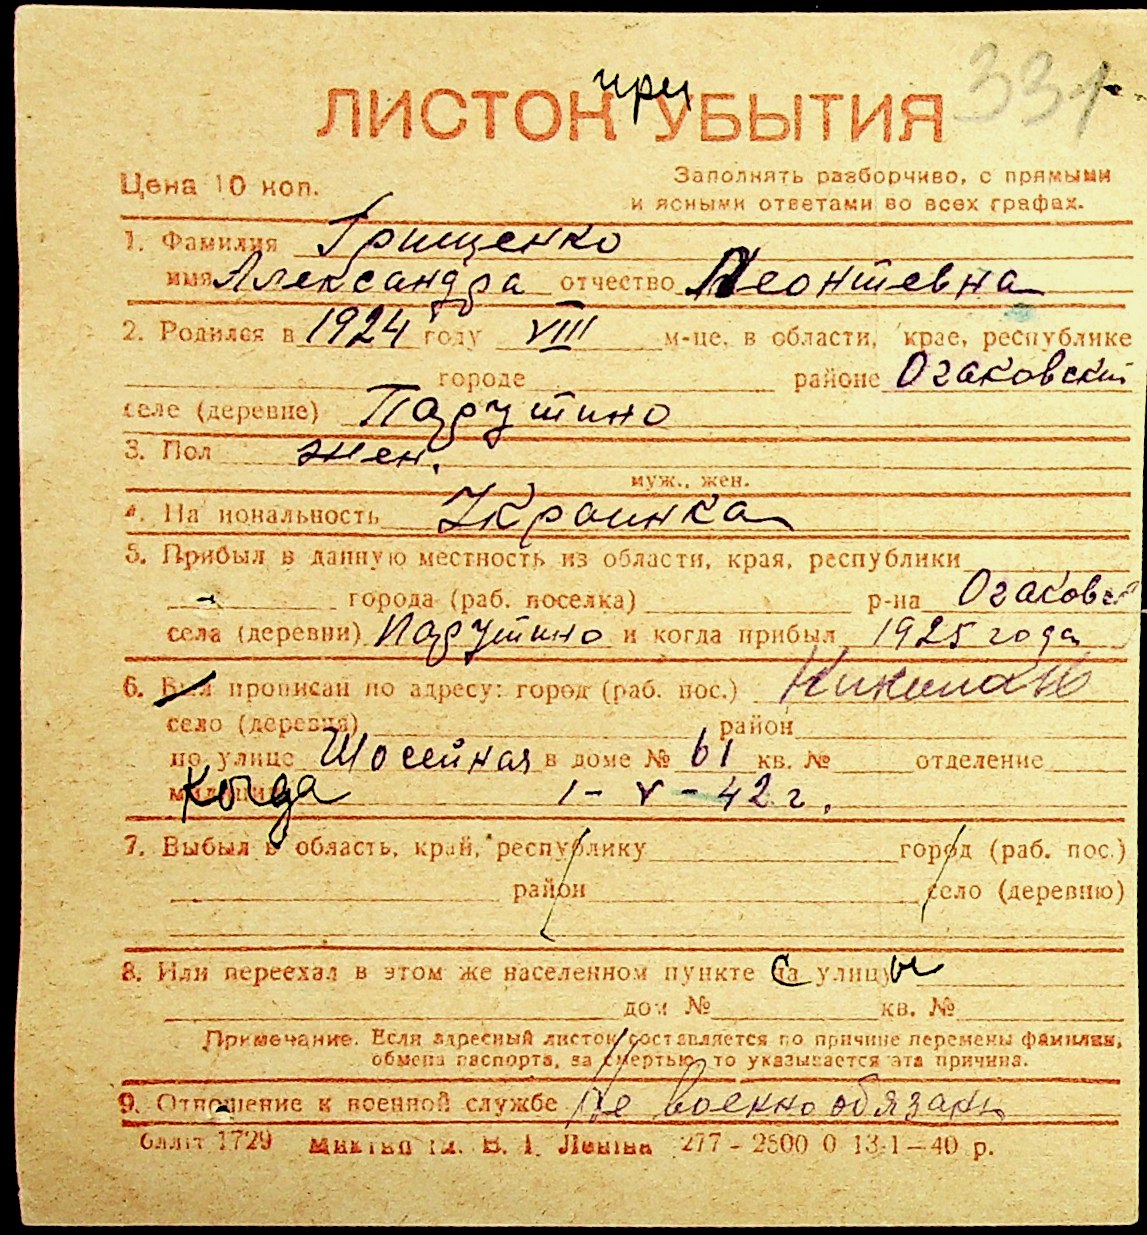 331
при
ЛИСТОК УБЫТИЯ
Цена 10 коп.
Заполнять разборчиво, с прямыми
и ясными ответами во всех графах.
1. Фамилия Грищенко
имя Александра отчество Леонтевна
2. Родился в 1924 году VIII м-це, в области, крае, республике
городе районе Очаковский
селе (деревне) Парутино
3. Пол жен.
муж., жен.
4. На иональность Украинка
5. Прибыл в данную местность из области, края, республики
города (раб. поселка) р-на Очаковс
села (деревни) Парутино и когда прибыл 1925 года
6. Был прописан по адресу: город (раб. пос.) Николаев
село (деревня) район
по улице Шосейная в доме № 61 кв. № отделение
милиции Когда 1-V-42 г.
7. Выбыл в область, край, республику город (раб. пос.)
район село (деревню)
8. Или переехал в этом же населенном пункте с улицы
дом № кв. №
Примечание. Если адресный листок составляется по причине перемены фамилии,
обмена паспорта, за смертью, то указывается эта причина.
9. Отношение к военной службе Не военнообязань
1729 Ленина 277-2500 0 13-1-40 р.